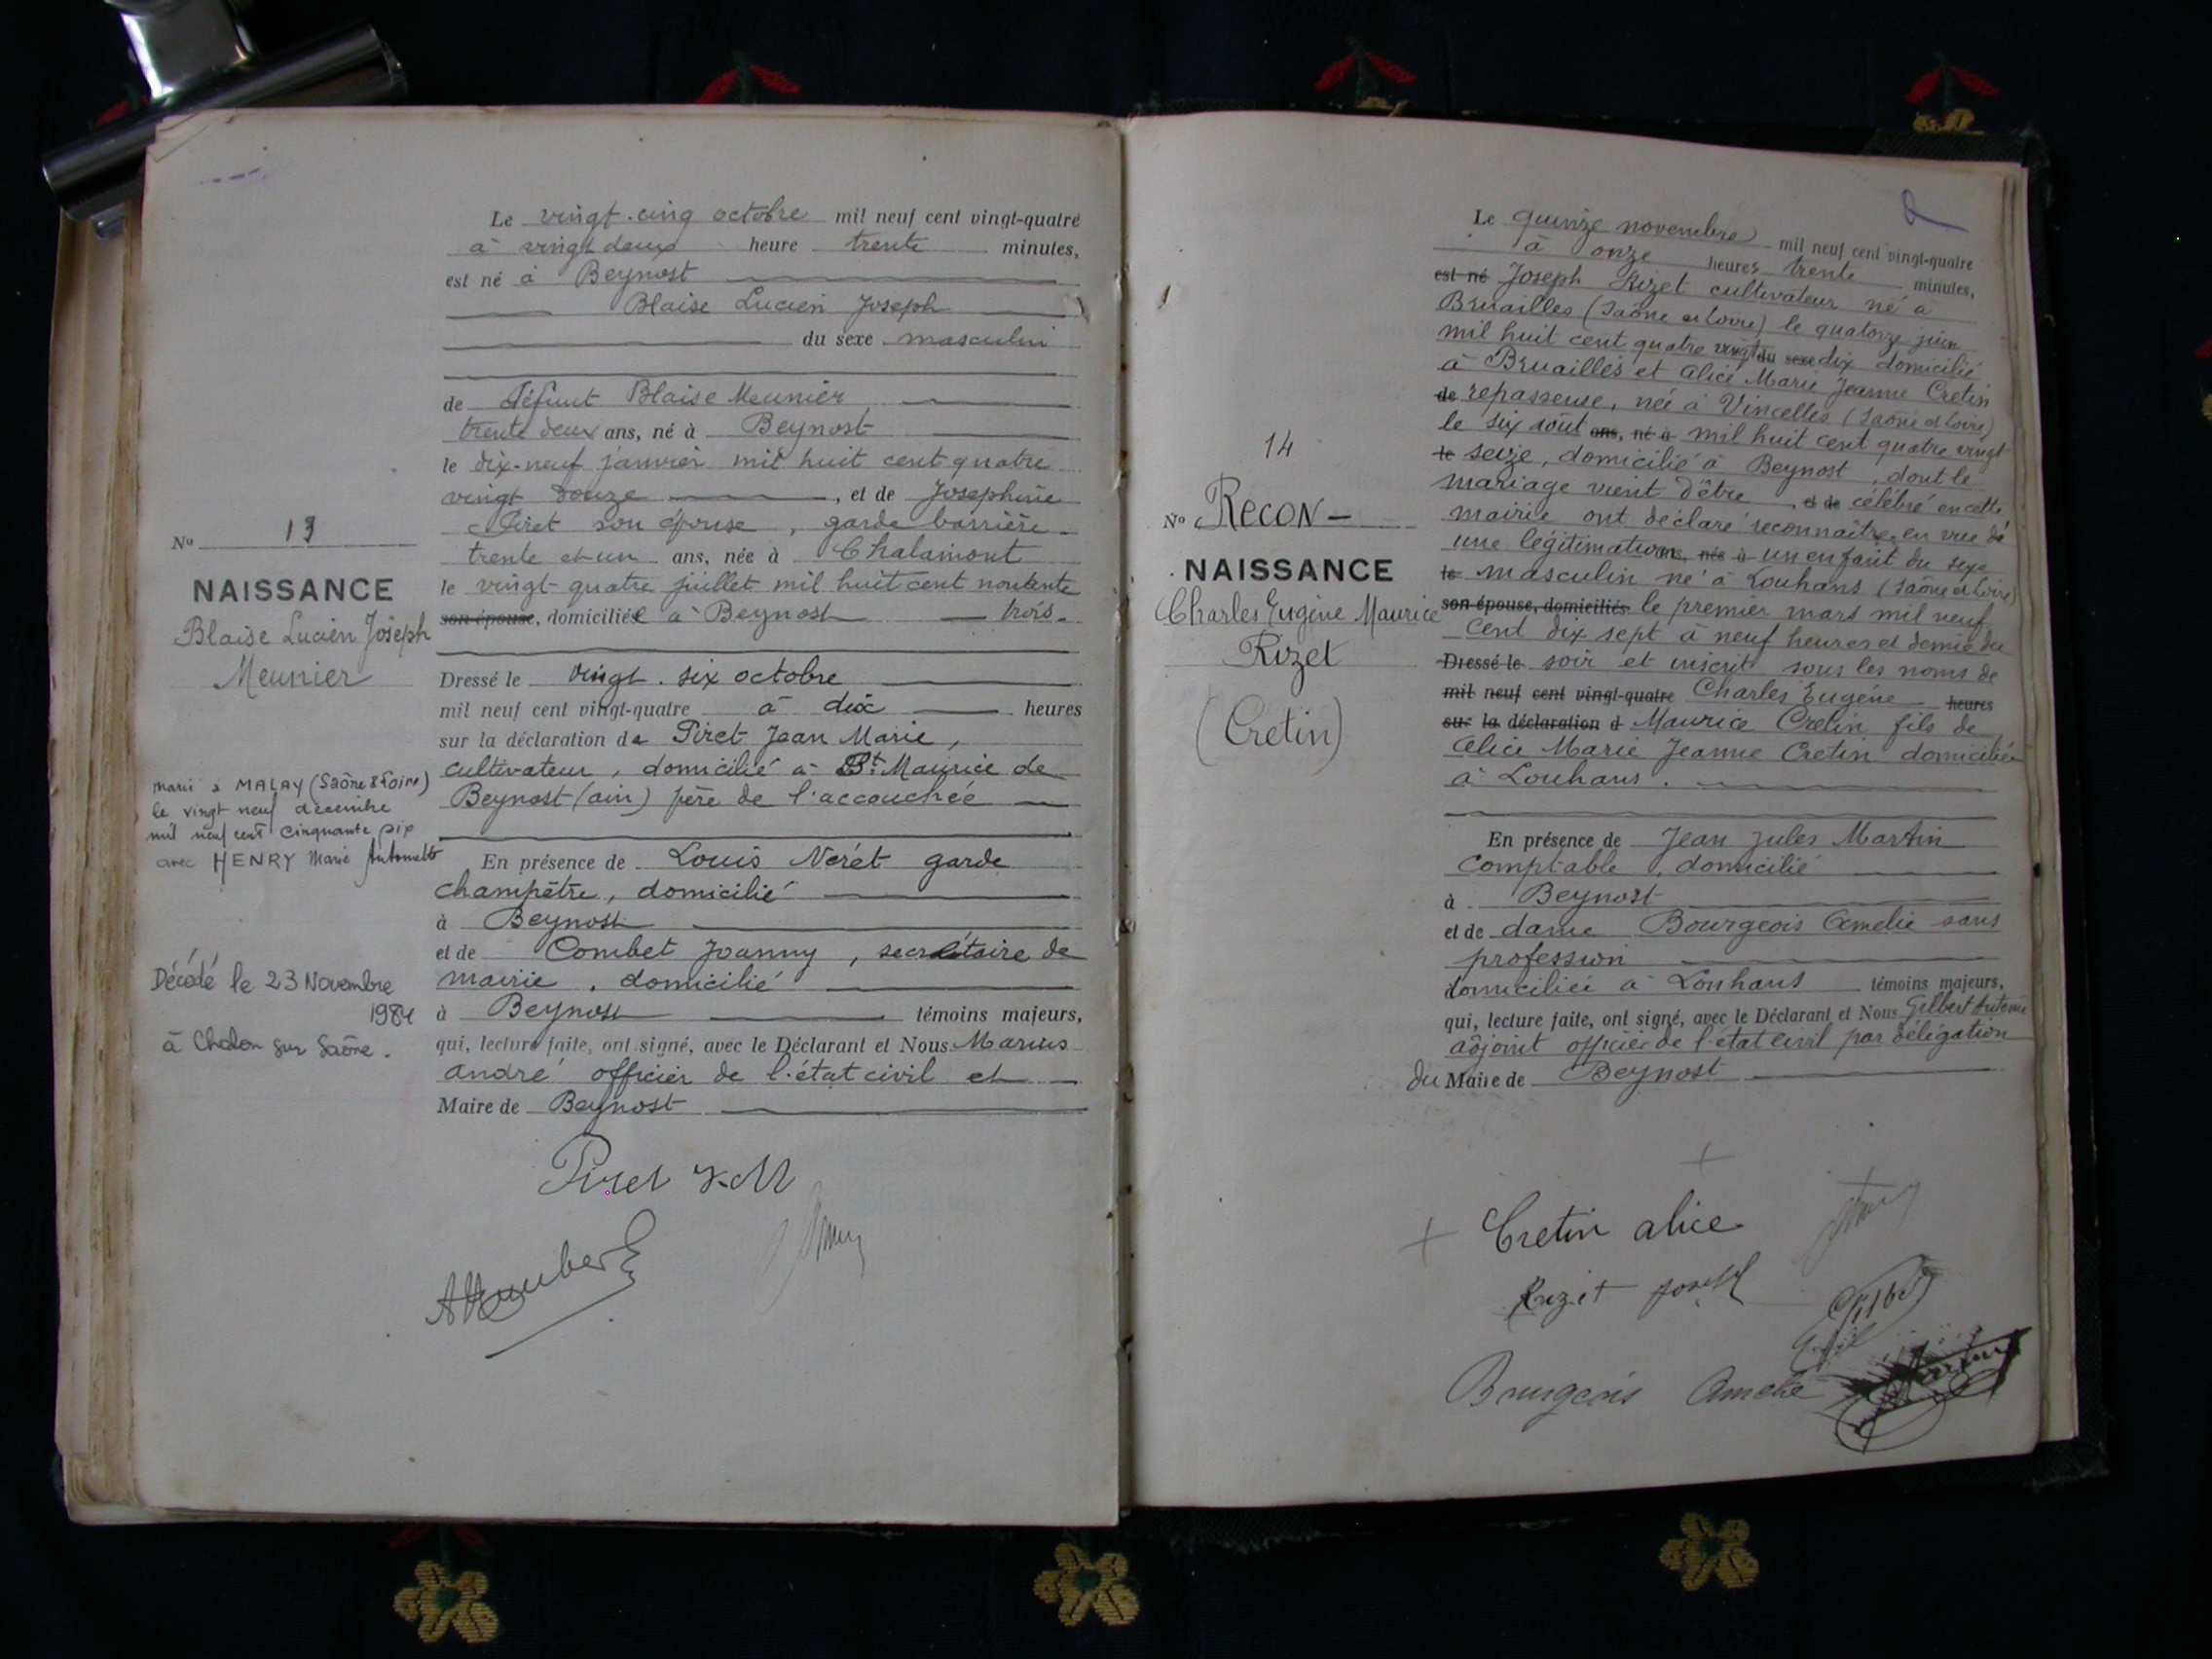 Le vingt-cinq octobre mil neuf cent vingt-quatre
à vingt deux heure trente minutes,
est né à Beynost
Blaise Lucien Joseph
du sexe masculin
de défunt Blaise Meunier
trente deux ans, né à Beynost
le dix-neuf janvier mil huit cent quatre
vingt douze, et de Joséphine
Piret son épouse, garde barrière
trente et un ans, née à Chalamont
le vingt-quatre juillet mil huit cent nonante
son épouse, domiciliée à Beynost trois.
Dressé le vingt-six octobre
mil neuf cent vingt-quatre à dix heures
sur la déclaration de Piret Jean Marie,
cultivateur, domicilié à St Maurice de
Beynost (ain) père de l'accouchée
En présence de Louis Néret garde
champêtre, domicilié
à Beynost
et de Combet Joanny, secrétaire de
mairie, domicilié
à Beynost témoins majeurs,
qui, lecture faite, ont signé, avec le Déclarant et Nous Marius
andré officier de l'état civil et
Maire de Beynost
Piret J-M
No 13
NAISSANCE
Blaise Lucien Joseph
Meunier
marié à MALAY (Saône & Loire)
le vingt neuf décembre
mil neuf cent cinquante six
avec HENRY Marie Antoinette
Décédé le 23 Novembre
1984
à Chalon sur Saône.
14
No RECON-
NAISSANCE
Charles Eugène Maurice
Rizet
(Cretin)
Le quinze novembre mil neuf cent vingt-quatre
à onze heures trente minutes,
est né Joseph Rizet cultivateur né à
Bruailles (Saône et Loire) le quatorze juin
mil huit cent quatre vingt du sexe dix domicilié
à Bruailles et Alice Marie Jeanne Cretin
de repasseuse, née à Vincelles (Saône et Loire)
le six août ans, né à mil huit cent quatre vingt
le seize, domicilié à Beynost, dont le
mariage vient d'être et de célébré en cette
mairie ont déclaré reconnaître en vue de
une légitimation, née à un enfant du sexe
le masculin né à Louhans (Saône et Loire)
son épouse, domiciliés le premier mars mil neuf
cent dix sept à neuf heures et demie du
Dressé le soir et inscrit sous les noms de
mil neuf cent vingt-quatre Charles Eugène heures
sur la déclaration d Maurice Cretin fils de
Alice Marie Jeanne Cretin domiciliée
à Louhans.
En présence de Jean Jules Martin
comptable, domicilié
à Beynost
et de dame Bourgeois Amélie sans
profession
domiciliée à Louhans témoins majeurs,
qui, lecture faite, ont signé, avec le Déclarant et Nous Gilbert Antoine
adjoint officier de l'état civil par délégation
du Maire de Beynost
Cretin alice
Rizet joseph
Bourgeois Amelie